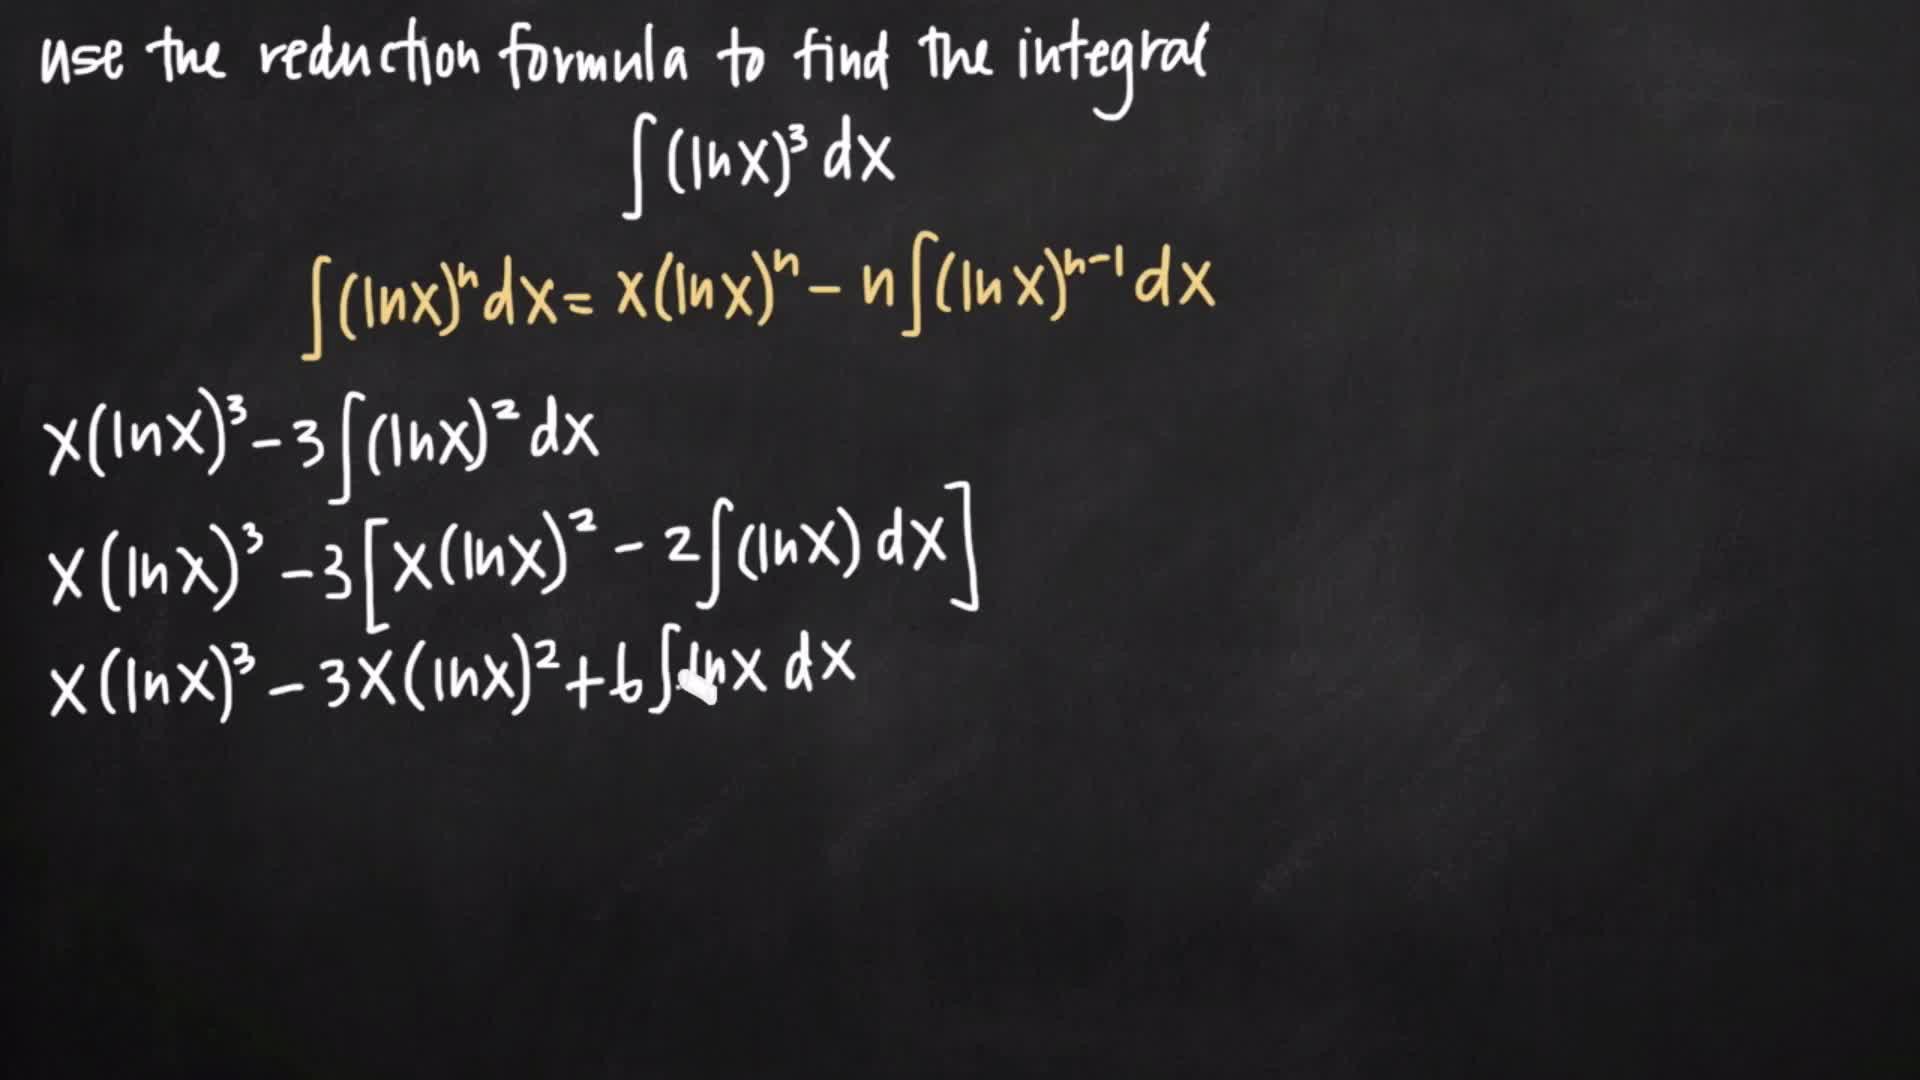 use the reduction formula to find the integral
∫(lnx)³ dx
∫(lnx)ⁿdx = x(lnx)ⁿ - n∫(lnx)ⁿ⁻¹ dx
x(lnx)³ - 3∫(lnx)² dx
x(lnx)³ - 3[x(lnx)² - 2∫(lnx) dx]
x(lnx)³ - 3x(lnx)² + 6∫lnx dx